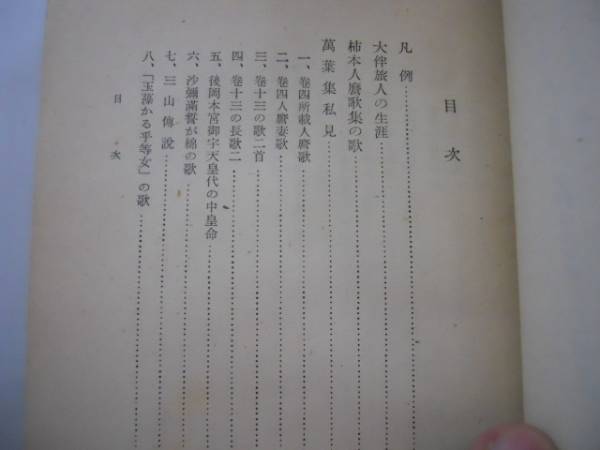 目次
凡例
大伴旅人の生涯
柿本人麿歌集の歌
萬葉集私見
一、卷四所載人麿歌
二、卷四人麿妻歌
三、卷十三の歌二首
四、卷十三の長歌二
五、後岡本宮御宇天皇代の中皇命
六、沙彌滿誓が綿の歌
七、三山傳說
八、「玉藻かる乎等女」の歌
目次